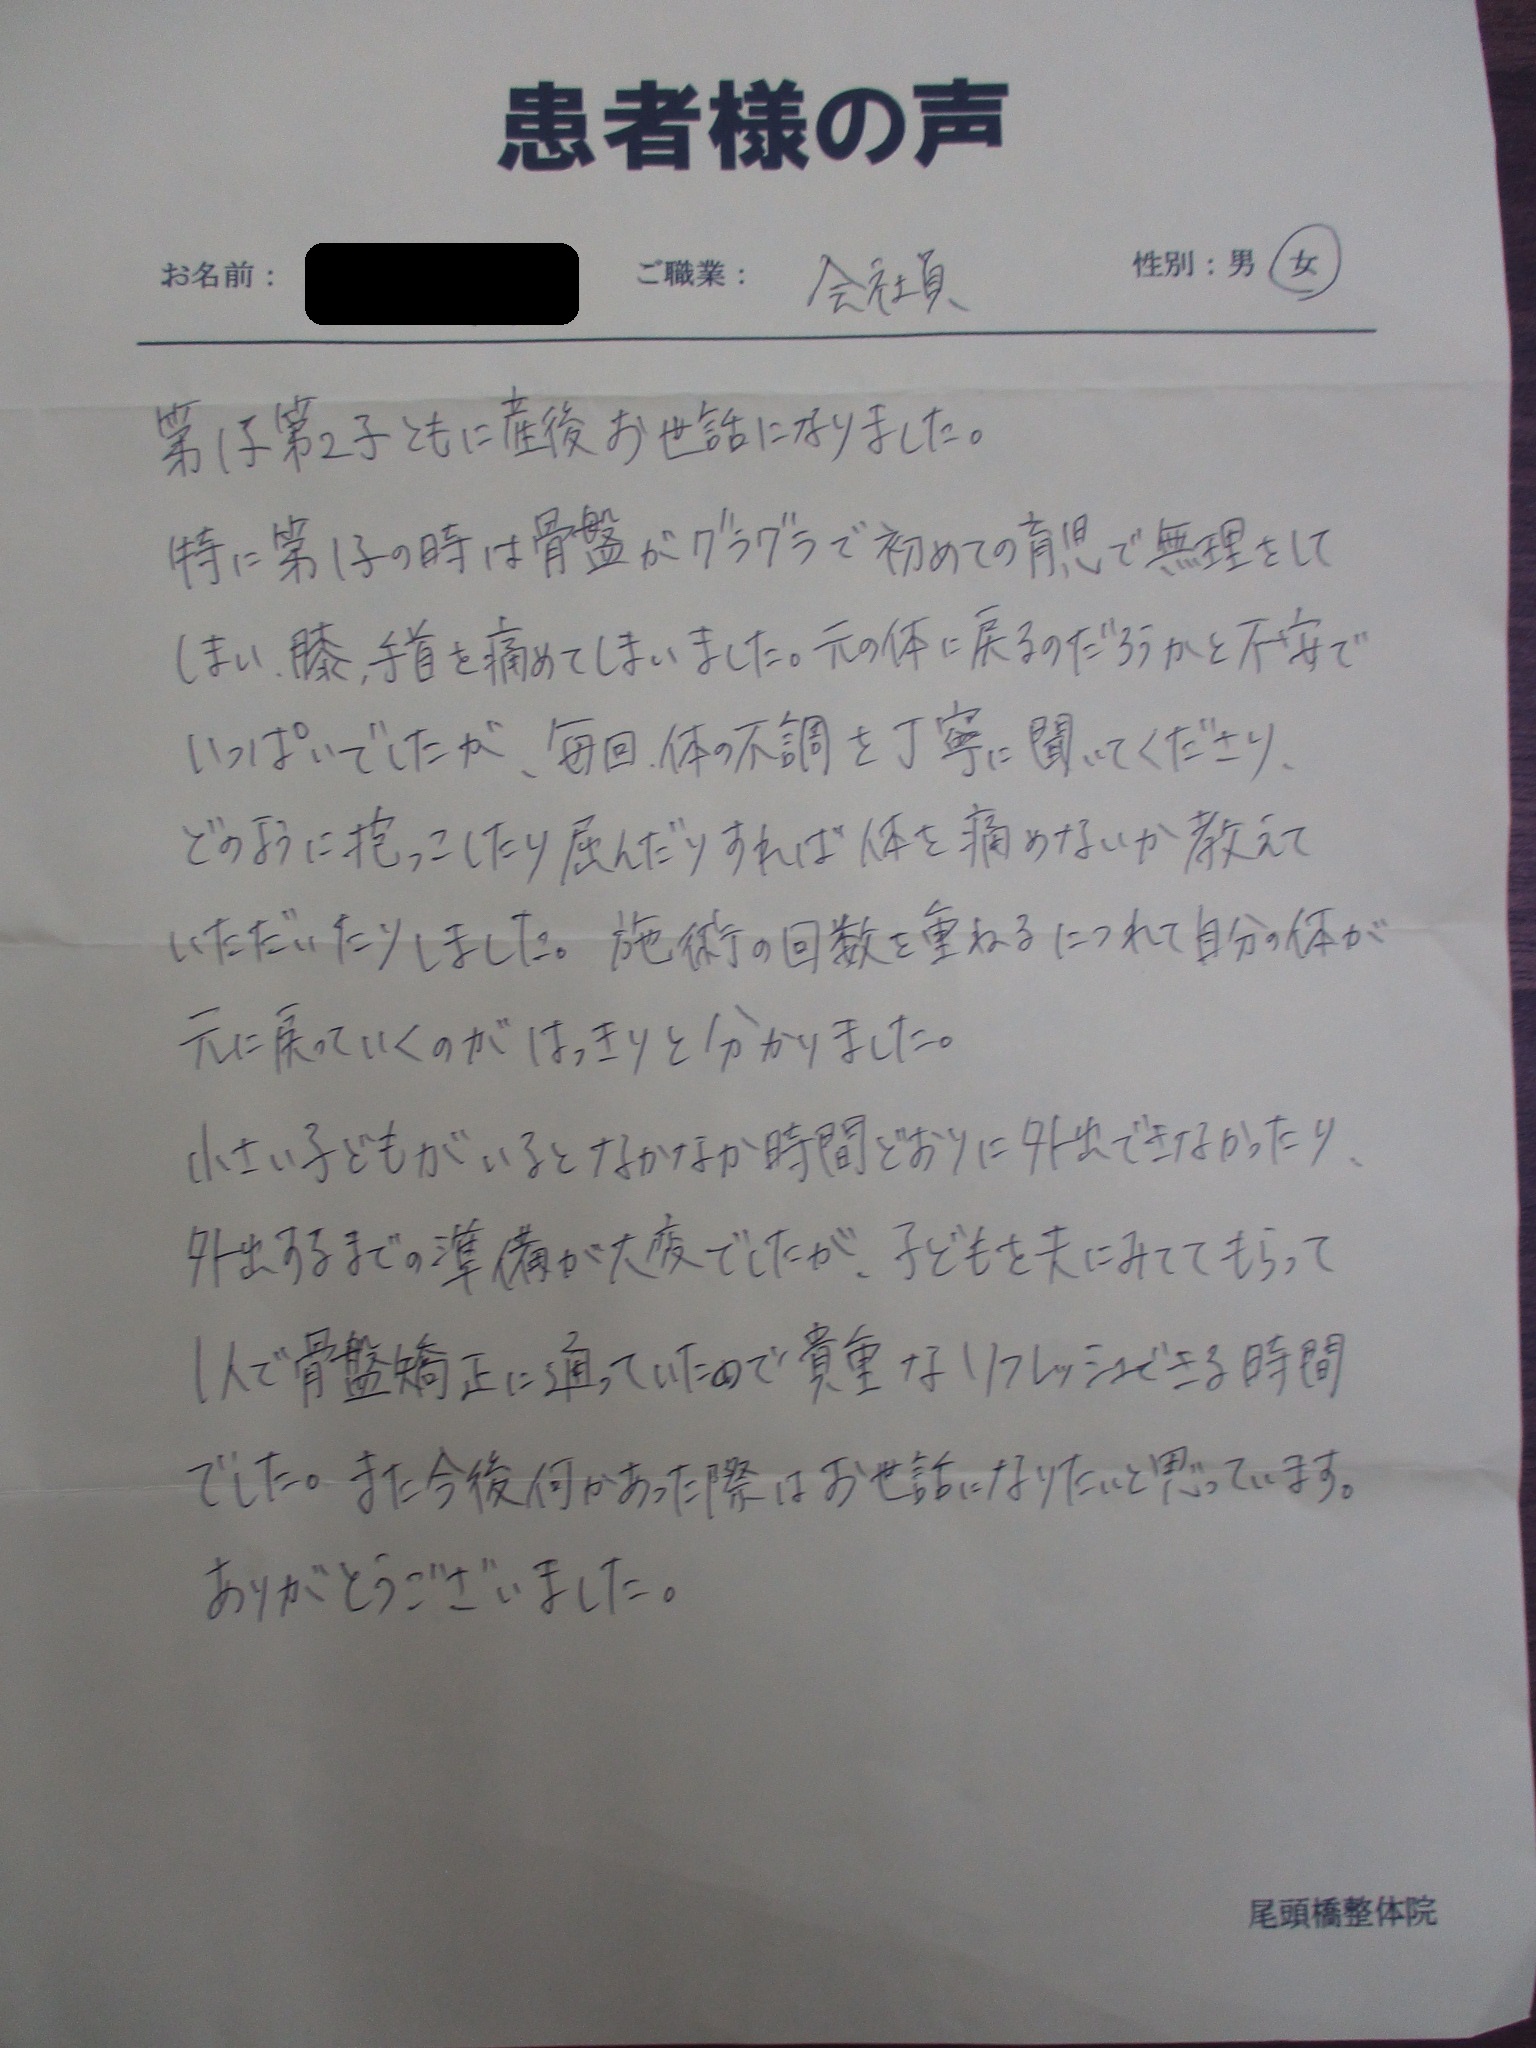 患者様の声
お名前： ご職業： 会社員 性別：男 女
第1子第2子ともに産後お世話になりました。
特に第1子の時は骨盤がグラグラで初めての育児で無理をして
しまい、膝、手首を痛めてしまいました。元の体に戻るのだろうかと不安で
いっぱいでしたが、毎回、体の不調を丁寧に聞いてくださり、
どのように抱っこしたり屈んだりすれば体を痛めないか教えて
いただいたりしました。施術の回数を重ねるにつれて自分の体が
元に戻っていくのがはっきりと分かりました。
小さい子どもがいるとなかなか時間どおりに外出できなかったり、
外出するまでの準備が大変でしたが、子どもを夫にみててもらって
1人で骨盤矯正に通っていたので貴重なリフレッシュできる時間
でした。また今後何かあった際はお世話になりたいと思っています。
ありがとうございました。
尾頭橋整体院